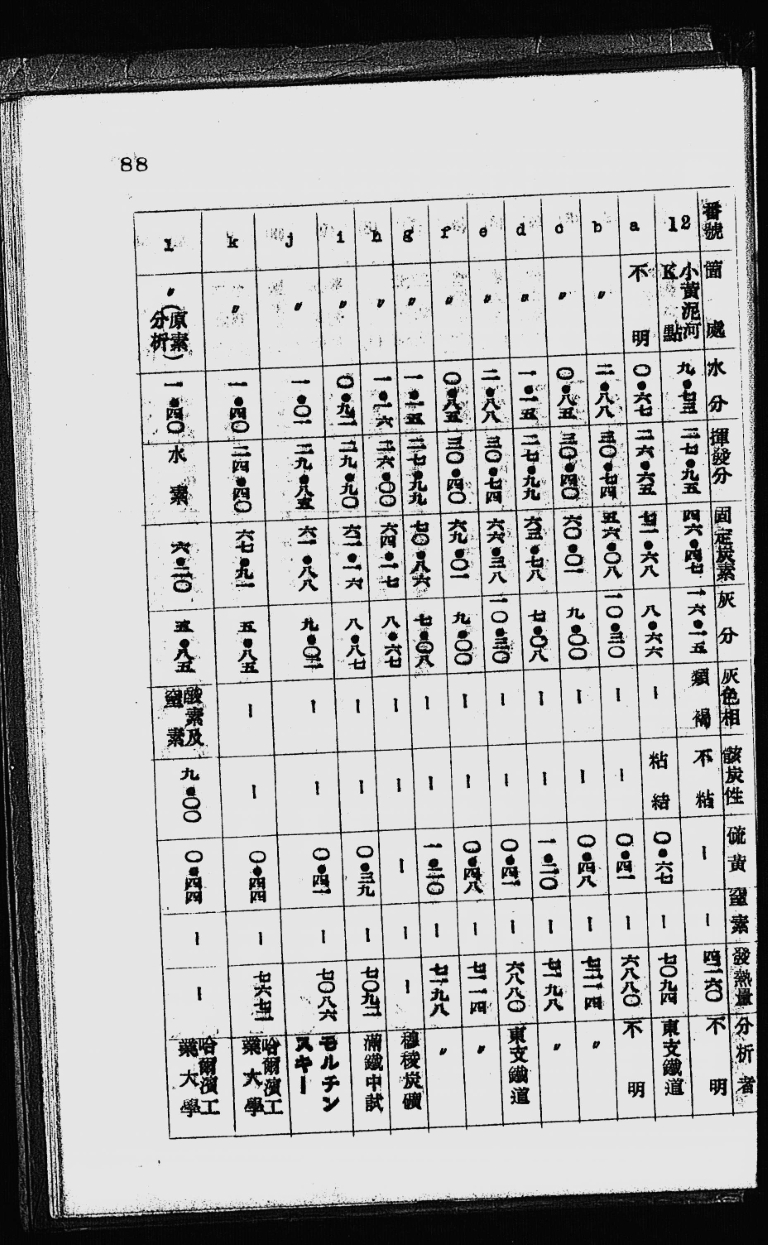 88
番號 12 a b c d e f g h i j k l
箇處 小黃泥河K點 不明 〃 〃 〃 〃 〃 〃 〃 〃 〃 〃 〃(原素分析)
水分 九•七三 〇•六七 二•八八 〇•八五 一•一五 二•八八 〇•八五 一•一五 一•一六 〇•九二 一•〇一 一•四〇 一•四〇
揮發分 二七•九五 二六•六五 三〇•七四 三〇•四〇 二七•九九 三〇•七四 三〇•四〇 二七•九九 二六•〇〇 二九•九〇 二九•八五 二四•四〇 水素
固定炭素 四六•四七 七一•六八 五六•〇八 六〇•〇一 六三•七八 六六•三八 六九•〇一 七〇•八六 六四•一七 六一•一六 六一•八八 六七•九一 六•二〇
灰分 一六•一五 八•六六 一〇•三〇 九•〇〇 七•〇八 一〇•三〇 九•〇〇 七•〇八 八•六七 八•八七 九•〇二 五•八五 五•八五
灰色相 類褐 — — — — — — — — — — — 酸素及窒素
骸炭性 不粘 粘結 — — — — — — — — — — 九•〇〇
硫黃 — 〇•六七 〇•四一 〇•四八 一•二〇 〇•四一 〇•四八 一•二〇 — 〇•三九 〇•四一 〇•四四 〇•四四
窒素 — — — — — — — — — — — — —
發熱量 四二六〇 七〇九四 六八八〇 七二一四 七一九八 六八八〇 七二一四 七一九八 — 七〇九二 七〇八六 七六七三 —
分析者 不明 東支鐵道 不明 〃 〃 東支鐵道 〃 〃 穆稜炭礦 滿鐵中試 モルチンスキー 哈爾濱工業大學 哈爾濱工業大學